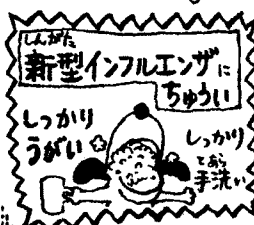 しんがた
新型インフルエンザに
ちゅうい
しっかり
うがい
しっかり
てあら
手洗い